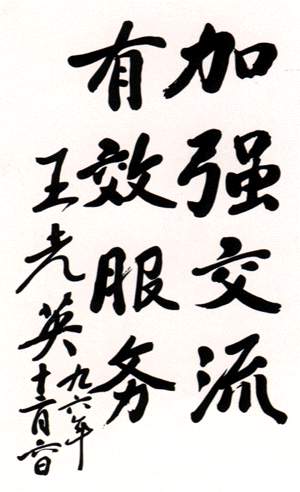 加强交流
有效服务
王光英
九六年
十二月六日